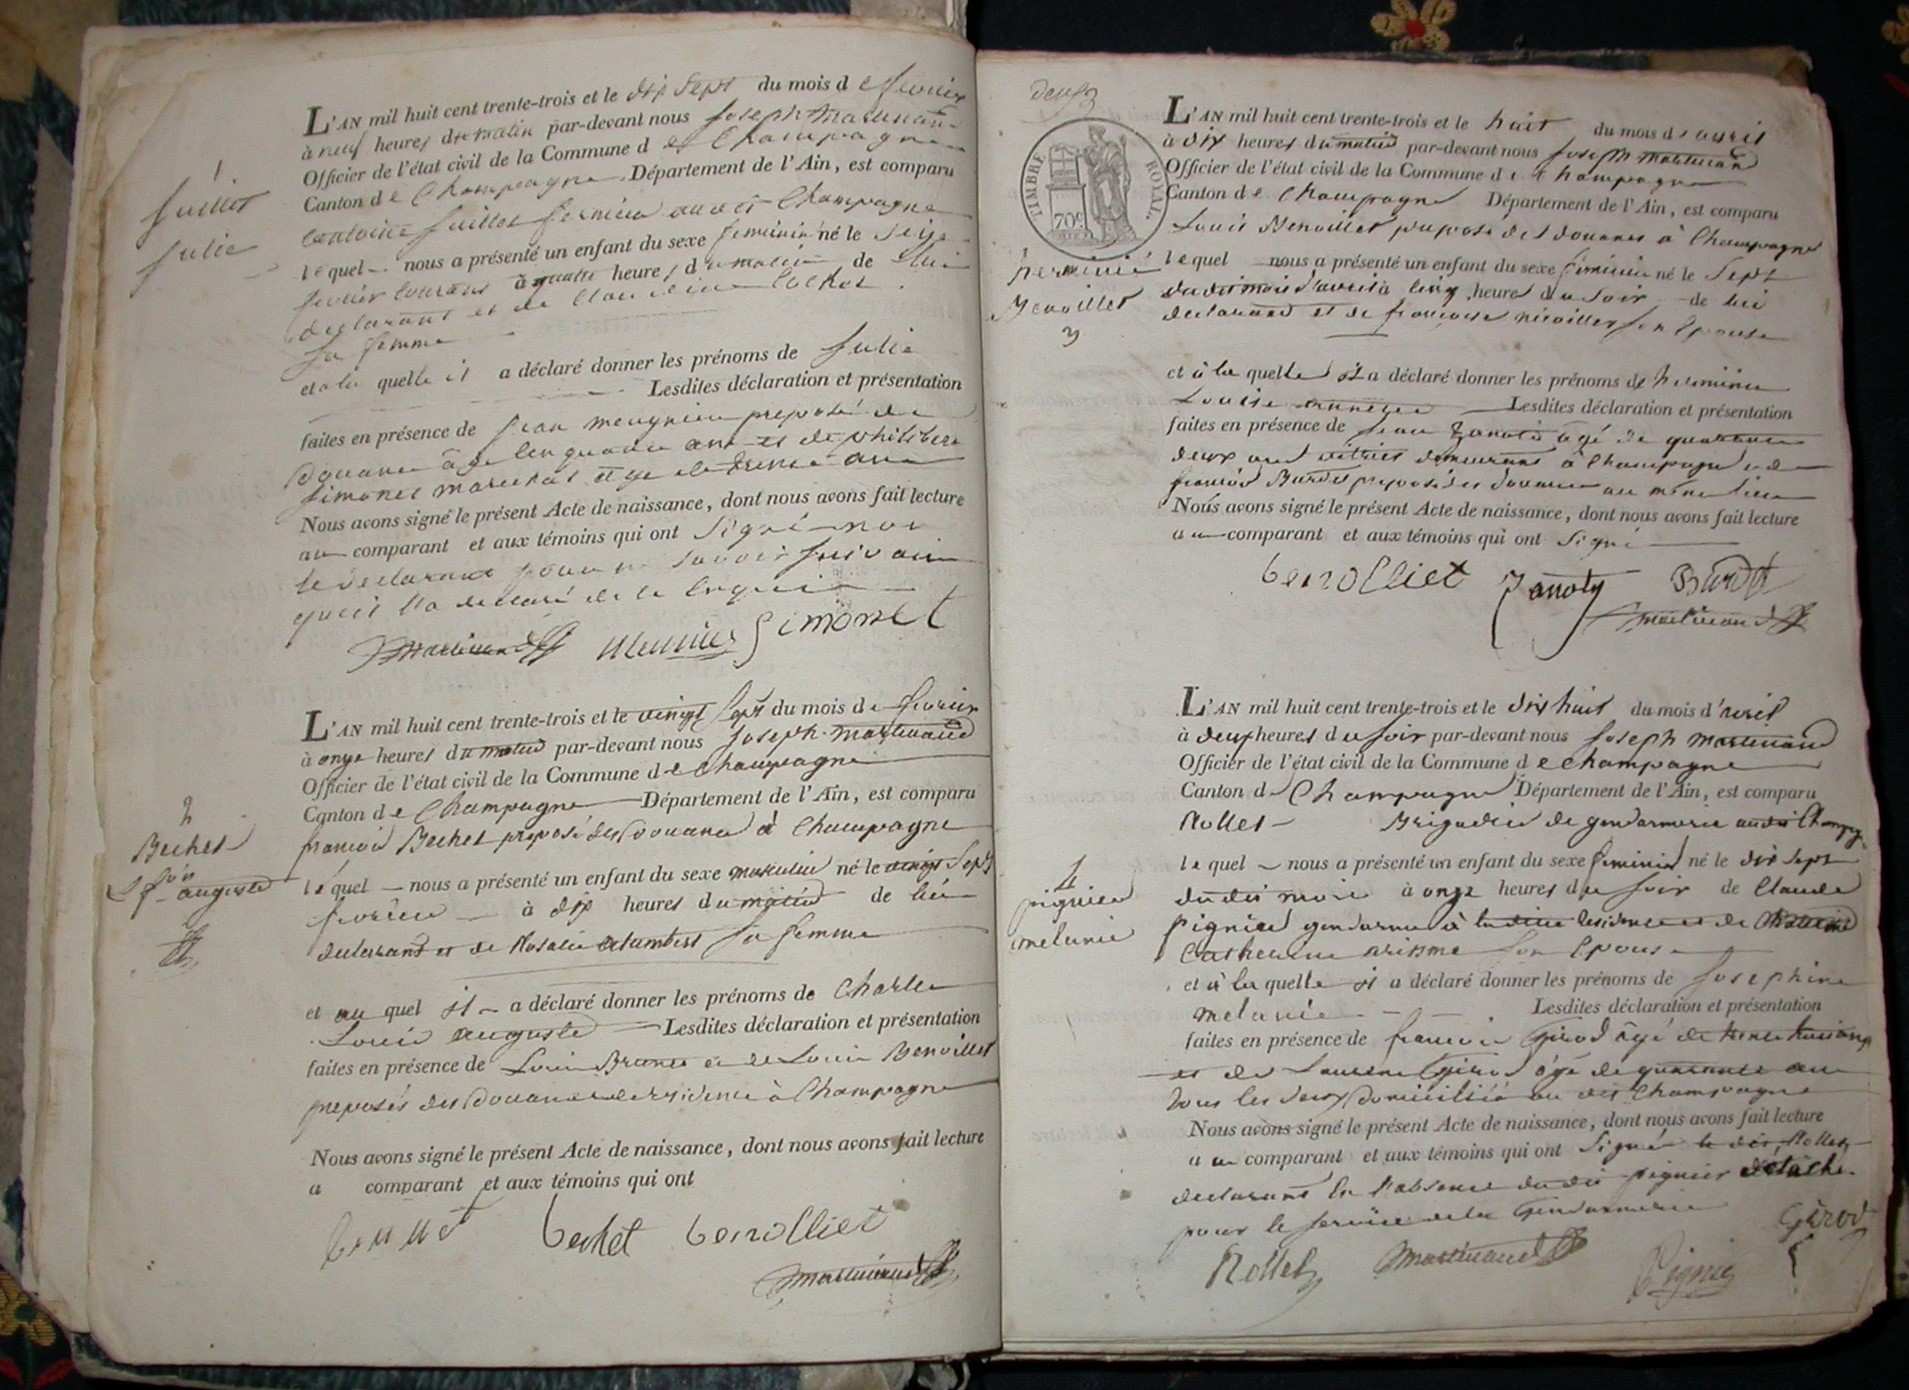 1
Juillet
Julie
L'AN mil huit cent trente-trois et le dix sept du mois de fevrier
à neuf heures du matin par-devant nous Joseph Martinand
Officier de l'état civil de la Commune d de Champagne
Canton de Champagne Département de l'Ain, est comparu
antoine Juillet fermier audit Champagne
lequel nous a présenté un enfant du sexe feminin né le seize
fevrier courant à quatre heures du matin de lui
declarant et de Claudine
sa femme
et a la quelle il a déclaré donner les prénoms de Julie
Lesdites déclaration et présentation
faites en présence de jean meugnier preposé de
Douane âgé cinquante ans et de philibert
Simonet marechal âgé de trente ans
Nous avons signé le présent Acte de naissance, dont nous avons fait lecture
au comparant et aux témoins qui ont signé non
le declarant pour ne savoir
qu'il l'a declaré de le enquis
Martinand Meunier Simonet
2
Bechet
auguste
L'AN mil huit cent trente-trois et le vingt sept du mois de fevrier
à onze heures du matin par-devant nous Joseph Martinand
Officier de l'état civil de la Commune de Champagne
Canton de Champagne Département de l'Ain, est comparu
francois Bechet preposé des Douanes à Champagne
lequel nous a présenté un enfant du sexe masculin né le vingt sept
fevrier à dix heures du matin de lui
declarant et de Rosalie delambert sa femme
et au quel il a déclaré donner les prénoms de Charles
Louis auguste Lesdites déclaration et présentation
faites en présence de Louis Brunet et de Louis Benoillet
preposés des Douanes de residence à Champagne
Nous avons signé le présent Acte de naissance, dont nous avons fait lecture
a comparant et aux témoins qui ont
Brunet bechet benolliet
Martinand
deux
TIMBRE ROYAL
70c
herminie
Benoillet
3
L'AN mil huit cent trente-trois et le huit du mois d'avril
à dix heures du matin par-devant nous Joseph Martinand
Officier de l'état civil de la Commune de Champagne
Canton de Champagne Département de l'Ain, est comparu
Louis Benoillet preposé des douanes à Champagne
lequel nous a présenté un enfant du sexe feminin né le sept
du dit mois d'avril à cinq heures du soir de lui
declarand et de francoise son epouse
et à la quelle il a déclaré donner les prénoms de herminie
Louise Lesdites déclaration et présentation
faites en présence de jean Zanoti âgé de quarante
deux ans demeurant à Champagne et de
francois Burdet preposé des douanes au même lieu
Nous avons signé le présent Acte de naissance, dont nous avons fait lecture
au comparant et aux témoins qui ont signé
benolliet Zanoty Burdet
Martinand
4
pignier
melanie
L'AN mil huit cent trente-trois et le dix huit du mois d'avril
à deux heures du soir par-devant nous Joseph Martinand
Officier de l'état civil de la Commune de Champagne
Canton de Champagne Département de l'Ain, est comparu
Rollet Brigadier de gendarmerie audit Champagne
lequel nous a présenté un enfant du sexe feminin né le dix sept
du dit mois à onze heures du soir de Claude
pignier gendarme à la dite residence et de
Catherine son epouse
et à la quelle il a déclaré donner les prénoms de Josephine
melanie Lesdites déclaration et présentation
faites en présence de francois Girod âgé de trente huit ans
et de Laurent Girod âgé de quarante ans
tous les deux domiciliés au dit Champagne
Nous avons signé le présent Acte de naissance, dont nous avons fait lecture
au comparant et aux témoins qui ont signé le dit Rollet
declarant en l'absence du dit pignier détaché
pour le service de la Gendarmerie
Rollet Martinand Pignier Girod